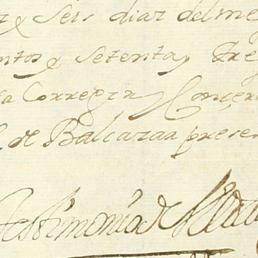 y seis dias del me
ntos y setenta y tre
a Corregir y Concer
l de Balcazar presen
testimonio de